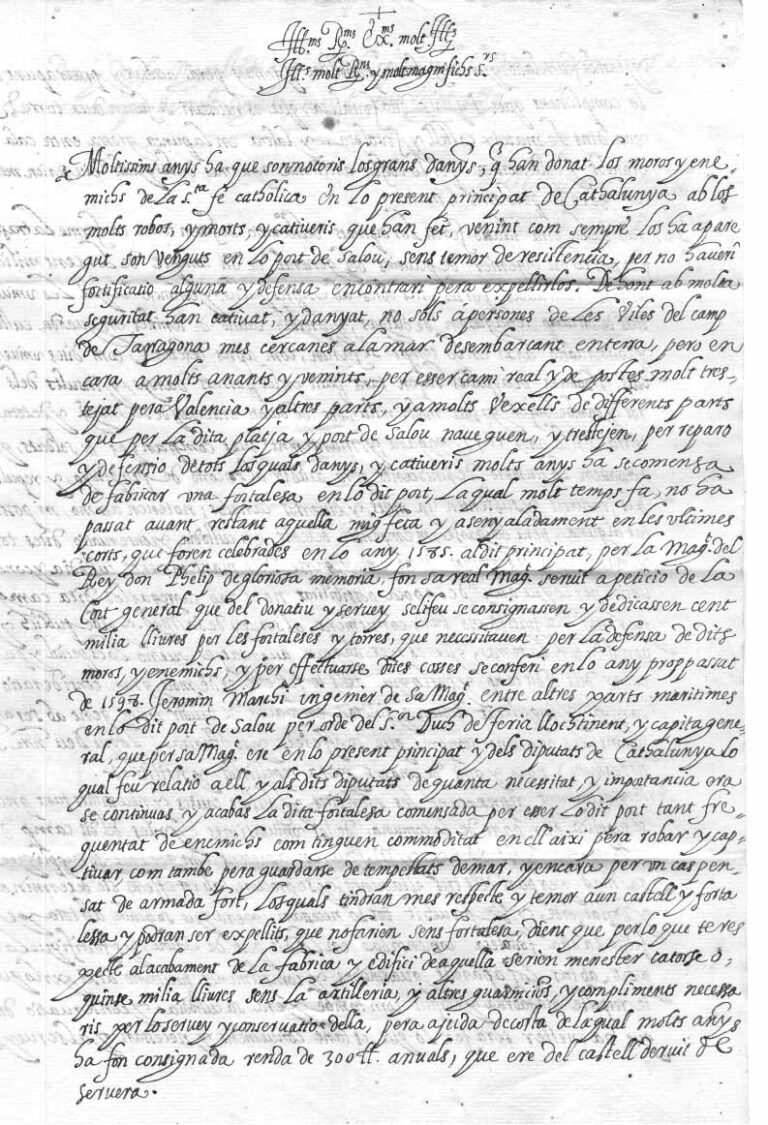 Ill.ms R.ms Ex.ms molt Ill.s
Ill.s molt R.ns y molt magnifichs s.rs
Moltissims anys ha que son notoris los grans danys, q̃ han donat los moros y ene-
michs de la s.ta fé catholica en lo present principat de Cathalunya ab los
molts robos, y morts, y cativeris que han fet, venint com sempre los ha apare
gut, son venguts en lo port de Salou, sens temor de resistencia, per no haverhi
fortificatio alguna y defensa en contrari pera expellirlos. De hont ab molta
seguritat han cativat, y danyat, no sols á persones de les Viles del camp
de Tarragona mes cercanes a la mar desembarcant en terra, pero en
cara a molts anants y venints, per esser cami real y de postes molt tres-
tejat pera Valencia y altres parts, y a molts vexells de differents parts
que per la dita platja y port de Salou naveguen, y trestejen, per reparo
y defensio de tots los quals danys, y cativeris molts anys ha se comensa
de fabricar una fortalesa en lo dit port, la qual molt temps fa, no ha
passat avant, restant aquella mig feta y asenyaladament en les ultimes
corts, que foren celebrades en lo any 1585. al dit principat, per la Mag.t del
Rey don Phelip de gloriosa memoria, fon sa real Mag.t servit a peticio de la
Cort general que del donatiu y servey se li feu se consignassen y dedicassen cent
milia lliures per les fortaleses y torres, que necessitaven per la defensa de dits
moros, y enemichs, y per effectuarse dites cosses se conferi en lo any prop passat
de 1598. Jeronim Marchi ingenier de sa Mag.t entre altres parts maritimes
en lo dit port de Salou per orde del s.or Duch de feria llochtinent, y capita gene-
ral, que per sa Mag.t ere en lo present principat y dels diputats de Cathalunya lo
qual feu relatio a ell y als dits diputats de quanta necessitat, y importancia era
se continuas y acabas la dita fortalesa comensada per esser lo dit port tant fre-
quentat de enemichs com tinguen commoditat en ell aixi pera robar y cap-
tivar, com tambe pera guardarse de tempestats de mar, y encara per un cas pen-
sat de armada fort, los quals tindran mes respecte y temor a un castell y forta
lessa y podran ser expellits, que no farien sens fortalesa, dient que per lo que te res
pecte al acabament de la fabrica y edifici de aquella serien menester catorse o
quinse milia lliures sens la artilleria, y altres guarnicions, y compliments necessa
ris per lo servey y conservatio della, pera ajuda de costa de la qual molts anys
ha fon consignada renda de 300 ll. anuals, que ere del castell derruit de
servera.